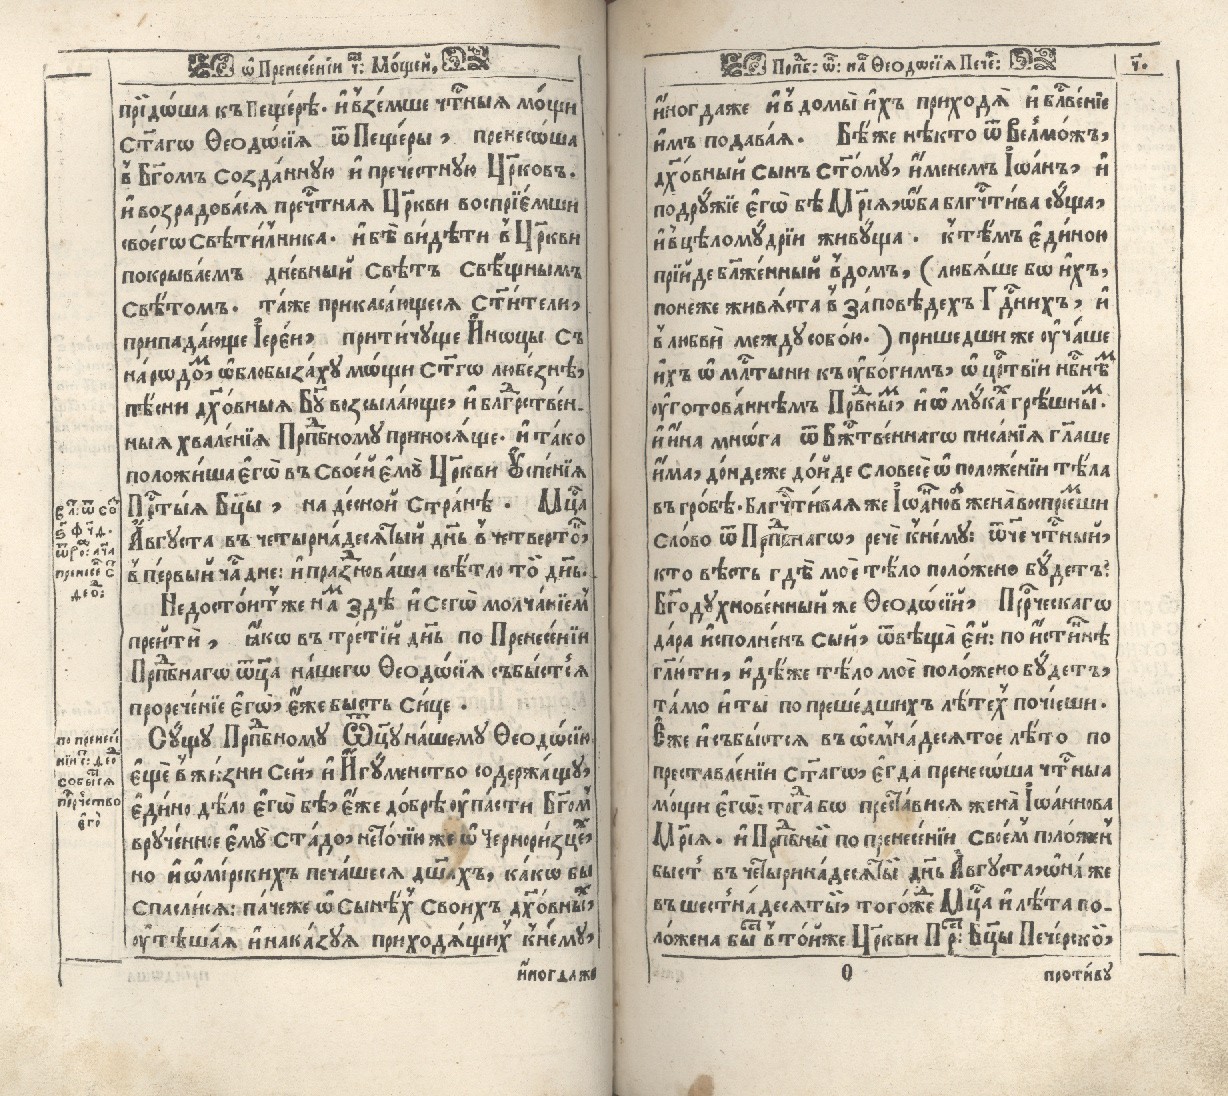 ѡ҆ Пренесе́нїи чⷭ҇: Мо́щей,
прїидо́ша къ Пеще́рѣ. и҆ в̾зе́мше чⷭ҇тныѧ мо́щи
ст҃агѡ Ѳеодѡ́сїѧ ѿ Пеще́ры, пренесо́ша
в̾ Бг҃омъ Созда́нную и҆ пречестную Цр҃ковъ.
и҆ возрадоваса преⷱ҇тнаѧ Цр҃кви воспрїе́мши
своегѡ̀ Свѣти́лника. и҆ бѣ̀ ви́дѣти в̾ Цр҃кви
покрыва́емъ дне́вный Свѣ́тъ Свѣ́щнымъ
Свѣ́томъ. та́же прикаса́ющесѧ Ст҃и́тели,
припада́юще І҆ере́и, прити́чуще И҆́ноцы съ
наро́домъ, ѡ҆блобыза́ху мо́щи Ст҃гѡ любе́знѣ,
пѣ́сни дх҃о́вныѧ Бг҃у возсыла́юще, и҆ бл҃года́рствен-
ныѧ хвале́нїѧ Прпⷣбному принося́ще. и҆ та́ко
положи́ша є҆го̀ въ свое́й є҆мꙋ̀ Цр҃кви Оу҆спе́нїѧ
Прⷭ҇ты́ѧ Бц҃ы, на десно́й Стра́нѣ. Мцⷭ҇а
А҆́вгꙋста въ четырнадесѧ́тый дн҃ь в̾ четверто́къ,
в̾ пе́рвый ча́съ дне: и҆ пра́зднова́ша свѣ́тло то́й дн҃ь.
Недосто́итъ же на́мъ здѣ̀ и҆ Сегѡ̀ молча́нїемъ
прейти́, ꙗ҆́кѡ въ тре́тїй дн҃ь по Пренесе́нїи
Прпⷣбнагѡ ѿц҃а на́шегѡ Ѳеодѡ́сїѧ съби́стсѧ
пророче́нїе є҆гѡ̀, є҆́же бы́сть Си́це.
Сꙋ́щꙋ Прпⷣбномꙋ Ѿц҃ꙋ на́шемꙋ Ѳеодѡ́сїю,
є҆щѐ в̾ жи́зни Се́й, и҆ И҆гꙋ́менство содержа́щꙋ,
є҆ди́но дѣ́ло є҆гѡ̀ бѣ̀, є҆́же до́брѣ оу҆пасти Бг҃омъ
врꙋче́нное є҆мꙋ̀ ста́до, неточїю же ѡ҆ Черноризцехъ,
но и҆ ѡ҆ мі́рскихъ печа́шесѧ дш҃ахъ, ка́кѡ бы
Спасли́сѧ: па́че же ѡ҆ Сынѣ́хъ Свои́хъ дх҃о́вныхъ,
оу҆тѣша́ѧ и҆ наказꙋѧ приходѧ́щихъ к̾не́мꙋ,
и҆ногда́же
Є҆ⷭ҇: ѿ со
ѿ Рⷤ: а҃ч҃а
пренесе́ С
Ѳео:
по пренесе́
нїи с: Ѳео
Собы́сѧ
прⷪ҇ро́чество
є҆гѡ̀
Прпⷣб: ѿ: на́ Ѳеодѡсїѧ Пече:
ч҃.
и҆ногда́же и҆ в̾ до́мы и҆́хъ приходѧ̀ и҆ бл҃гве́нїе
и҆́мъ подава́ѧ. Бѣ́ же нѣ́кто ѿ Велмо́жъ,
дх҃о́вный сы́нъ ст҃о́мꙋ, и҆́менемъ І҆ѡа́нъ, и҆
подрꙋ́жїе є҆гѡ̀ бѣ̀ Мр҃і́ѧ, ѡ҆́ба блг҃чⷭ҇ти́ва сꙋ́ща,
и҆ в̾ цѣломꙋ́дрїи живꙋ́ща. к̾ тѣ́мъ є҆ди́ною
прїи́де бл҃же́нный в̾ до́мъ, (любѧ́ше бо и҆́хъ,
поне́же живѧ́ста в̾ за́повѣдехъ Гдⷭ҇нихъ, и҆
в̾ любви междꙋ собо́ю.) прише́дши же оу҆ча́ше
и҆́хъ ѡ҆ млⷭ҇тыни къ оу҆бо́гимъ, ѡ҆ црⷭ҇твїи нбⷭ҇нѣмъ
оу҆гото́ваннѣмъ Првⷣнымъ, и҆ ѡ҆ мꙋ́кахъ грѣ́шнымъ.
и҆ и҆́на мнѡ́га ѿ Бжⷭ҇твеннагѡ писа́нїѧ гл҃аше
и҆́ма, до́ндеже до́йде Словесѐ ѡ҆ положе́нїи тѣ́ла
въ гро́бѣ. Блгⷱ҇ти́ваѧ же І҆ѡа́ннова жена̀ воспрїе́мши
Сло́во ѿ Прпⷣбнагѡ, речѐ к̾не́мꙋ: ѿч҃е чⷭ҇тный,
кто вѣ́сть гдѣ̀ моѐ тѣ́ло положено̀ бꙋ́детъ?
Бг҃одꙋхнове́нный же Ѳеодѡ́сїй, Прⷪ҇ро́ческагѡ
да́ра и҆спо́лненъ Сый, ѿвѣща̀ є҆́й: по и҆́стиннѣ
гл҃ю ти, и҆дѣ́же тѣ́ло моѐ поло́жено бꙋ́детъ,
та́мо и҆ ты̀ по преше́дшихъ лѣ́техъ почі́еши.
Є҆́же и҆ събы́стсѧ въ ѡ҆смна́десѧтое лѣ́то по
преставле́нїи Ст҃агѡ, є҆гда̀ пренесо́ша чⷭ҇тныѧ
мо́щи є҆гѡ̀: тогда́ бо преста́висѧ жена̀ І҆ѡа́ннова
Мр҃і́ѧ. и҆ Прпⷣбный по пренесе́нїи Свое́мъ поло́женъ
бы́сть въ четырина́десѧтый дн҃ь А҆́вгꙋста, ѡ҆на́ же
въ шестна́десѧтый, тогѡ́же Мцⷭ҇а и҆ лѣ́та по-
ло́жена бы́сть в̾ то́йже Цр҃кви Прⷭ҇: Бц҃ы Пече́рской,
Ѳ
проти́вꙋ